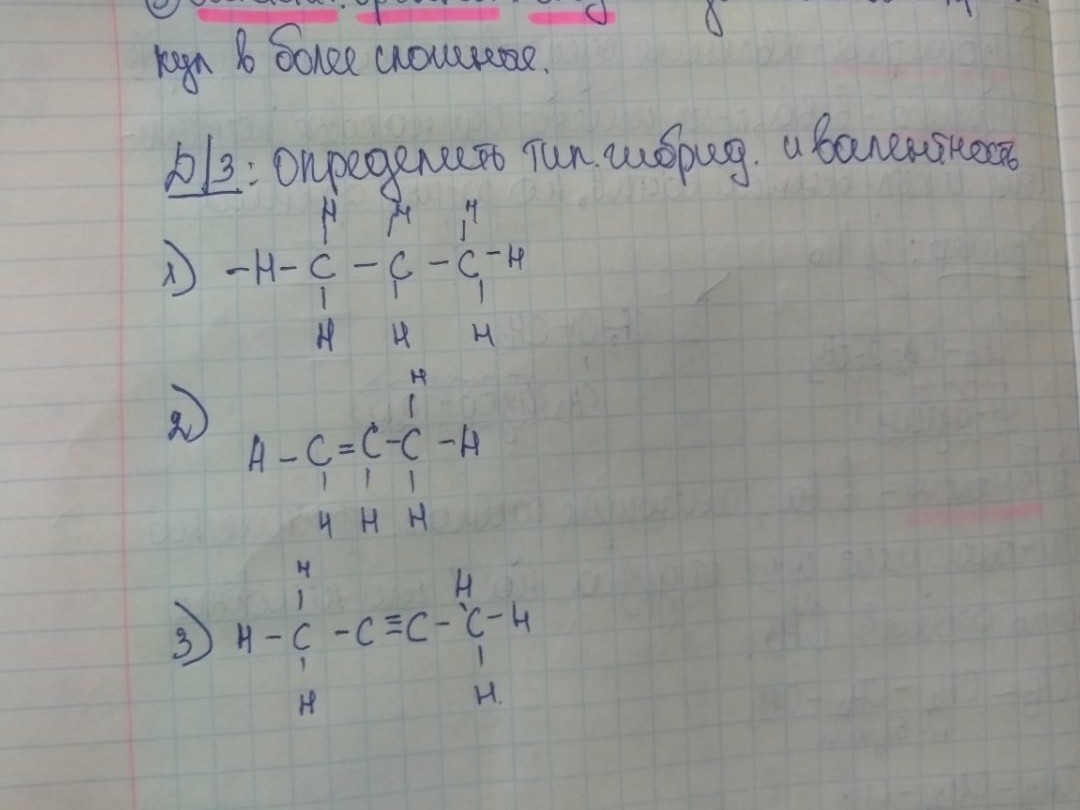 кул в более сложные.
Д/З: Определить тип. гибрид. и валентность
H H H
1) -H- C - C - C -H
H H H
H
2) H - C = C - C - H
H H H
H H
3) H - C - C ≡ C - C - H
H H.